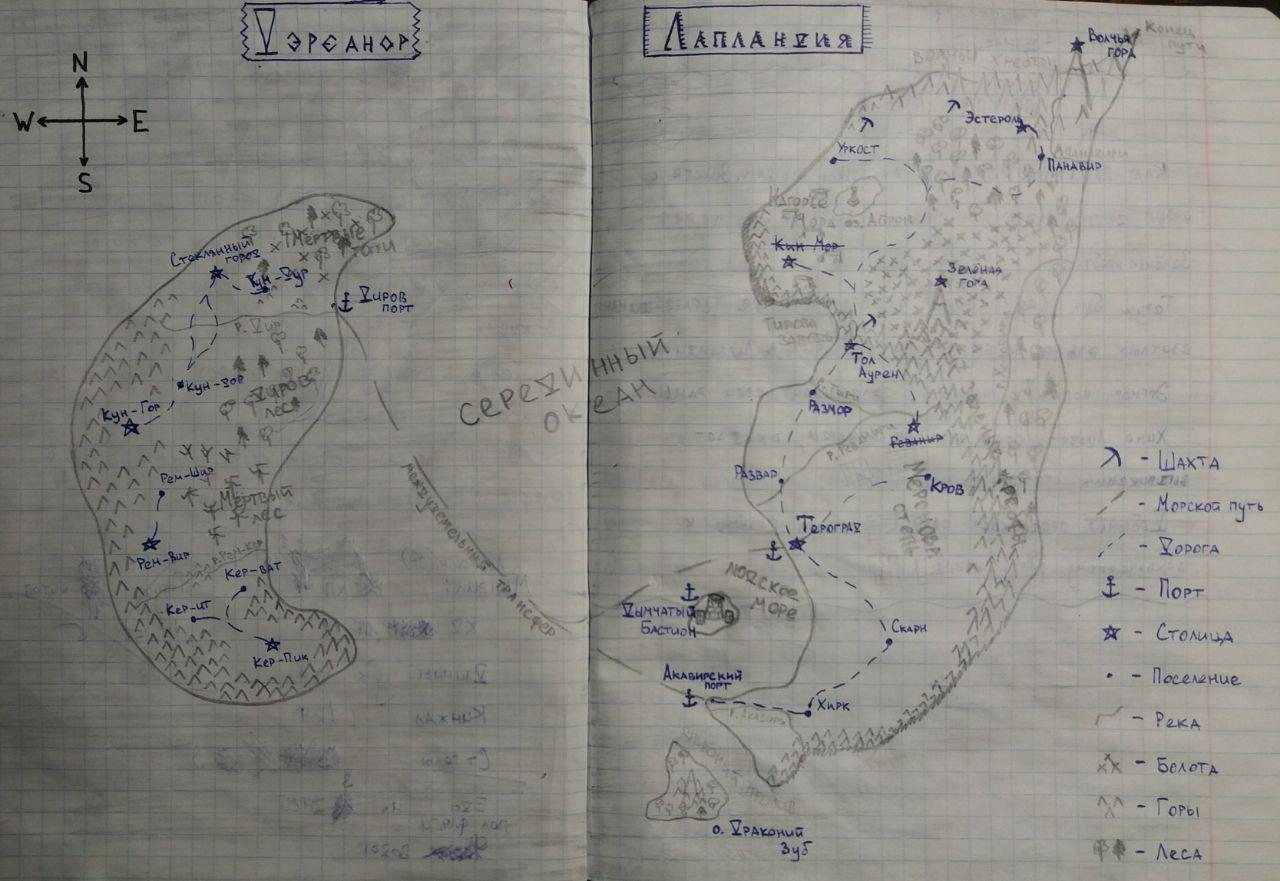 Дэрсанор
N
W
E
S
Стеклянный
город
Мёртвые
топи
Кун-Дур
Диров
порт
р. Дир
Кун-Зор
Диров
лес
Кун-Гор
Рем-Шур
Мёртвый
лес
Рем-Вир
р. Рем-Кер
Кер-Ват
Кер-Ит
Кер-Пик
Серединный
океан
Межземельный трансфер
Лапландия
Конец
пути
Волчья
гора
Волчий хребет
Эстерол
Панавир
Уркост
Нагорье
Мора
оз. Агрон
Кин Мор
Зелёная
гора
Тирова
завесь
Тол
Аурен
р. Тири
Размор
Реванир
р. Ревмири
Развар
Кров
Меронова
степь
Тероград
Лойское
море
Дымчатый
Бастион
Скарн
Акавирский
порт
Хирк
р. Акавири
о. Драконий
Зуб
- Шахта
- Морской путь
- Дорога
- Порт
- Столица
- Поселение
- Река
- Болота
- Горы
- Леса